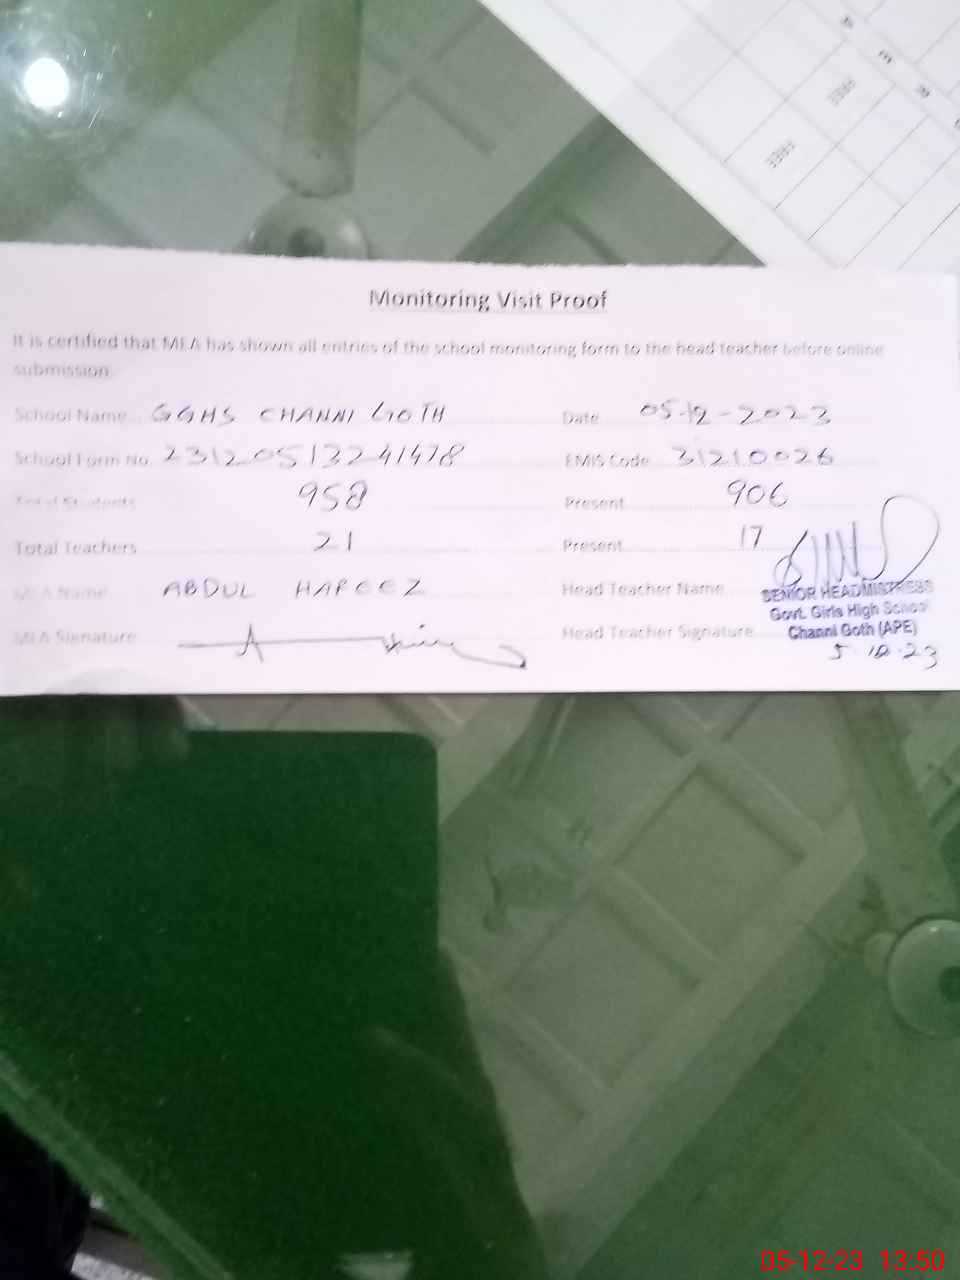 Monitoring Visit Proof
It is certified that MEA has shown all entries of the school monitoring form to the head teacher before online
submission.
School Name GGHS CHANNI GOTH Date 05-12-2023
School Form No 231205132241478 EMIS Code 31210026
Total Students 958 Present 906
Total Teachers 21 Present 17
MEA Name ABDUL HAFEEZ Head Teacher Name
SENIOR HEADMISTRESS
Govt. Girls High School
MEA Signature Head Teacher Signature Channi Goth (APE)
5.12.23
05-12-23 13:50